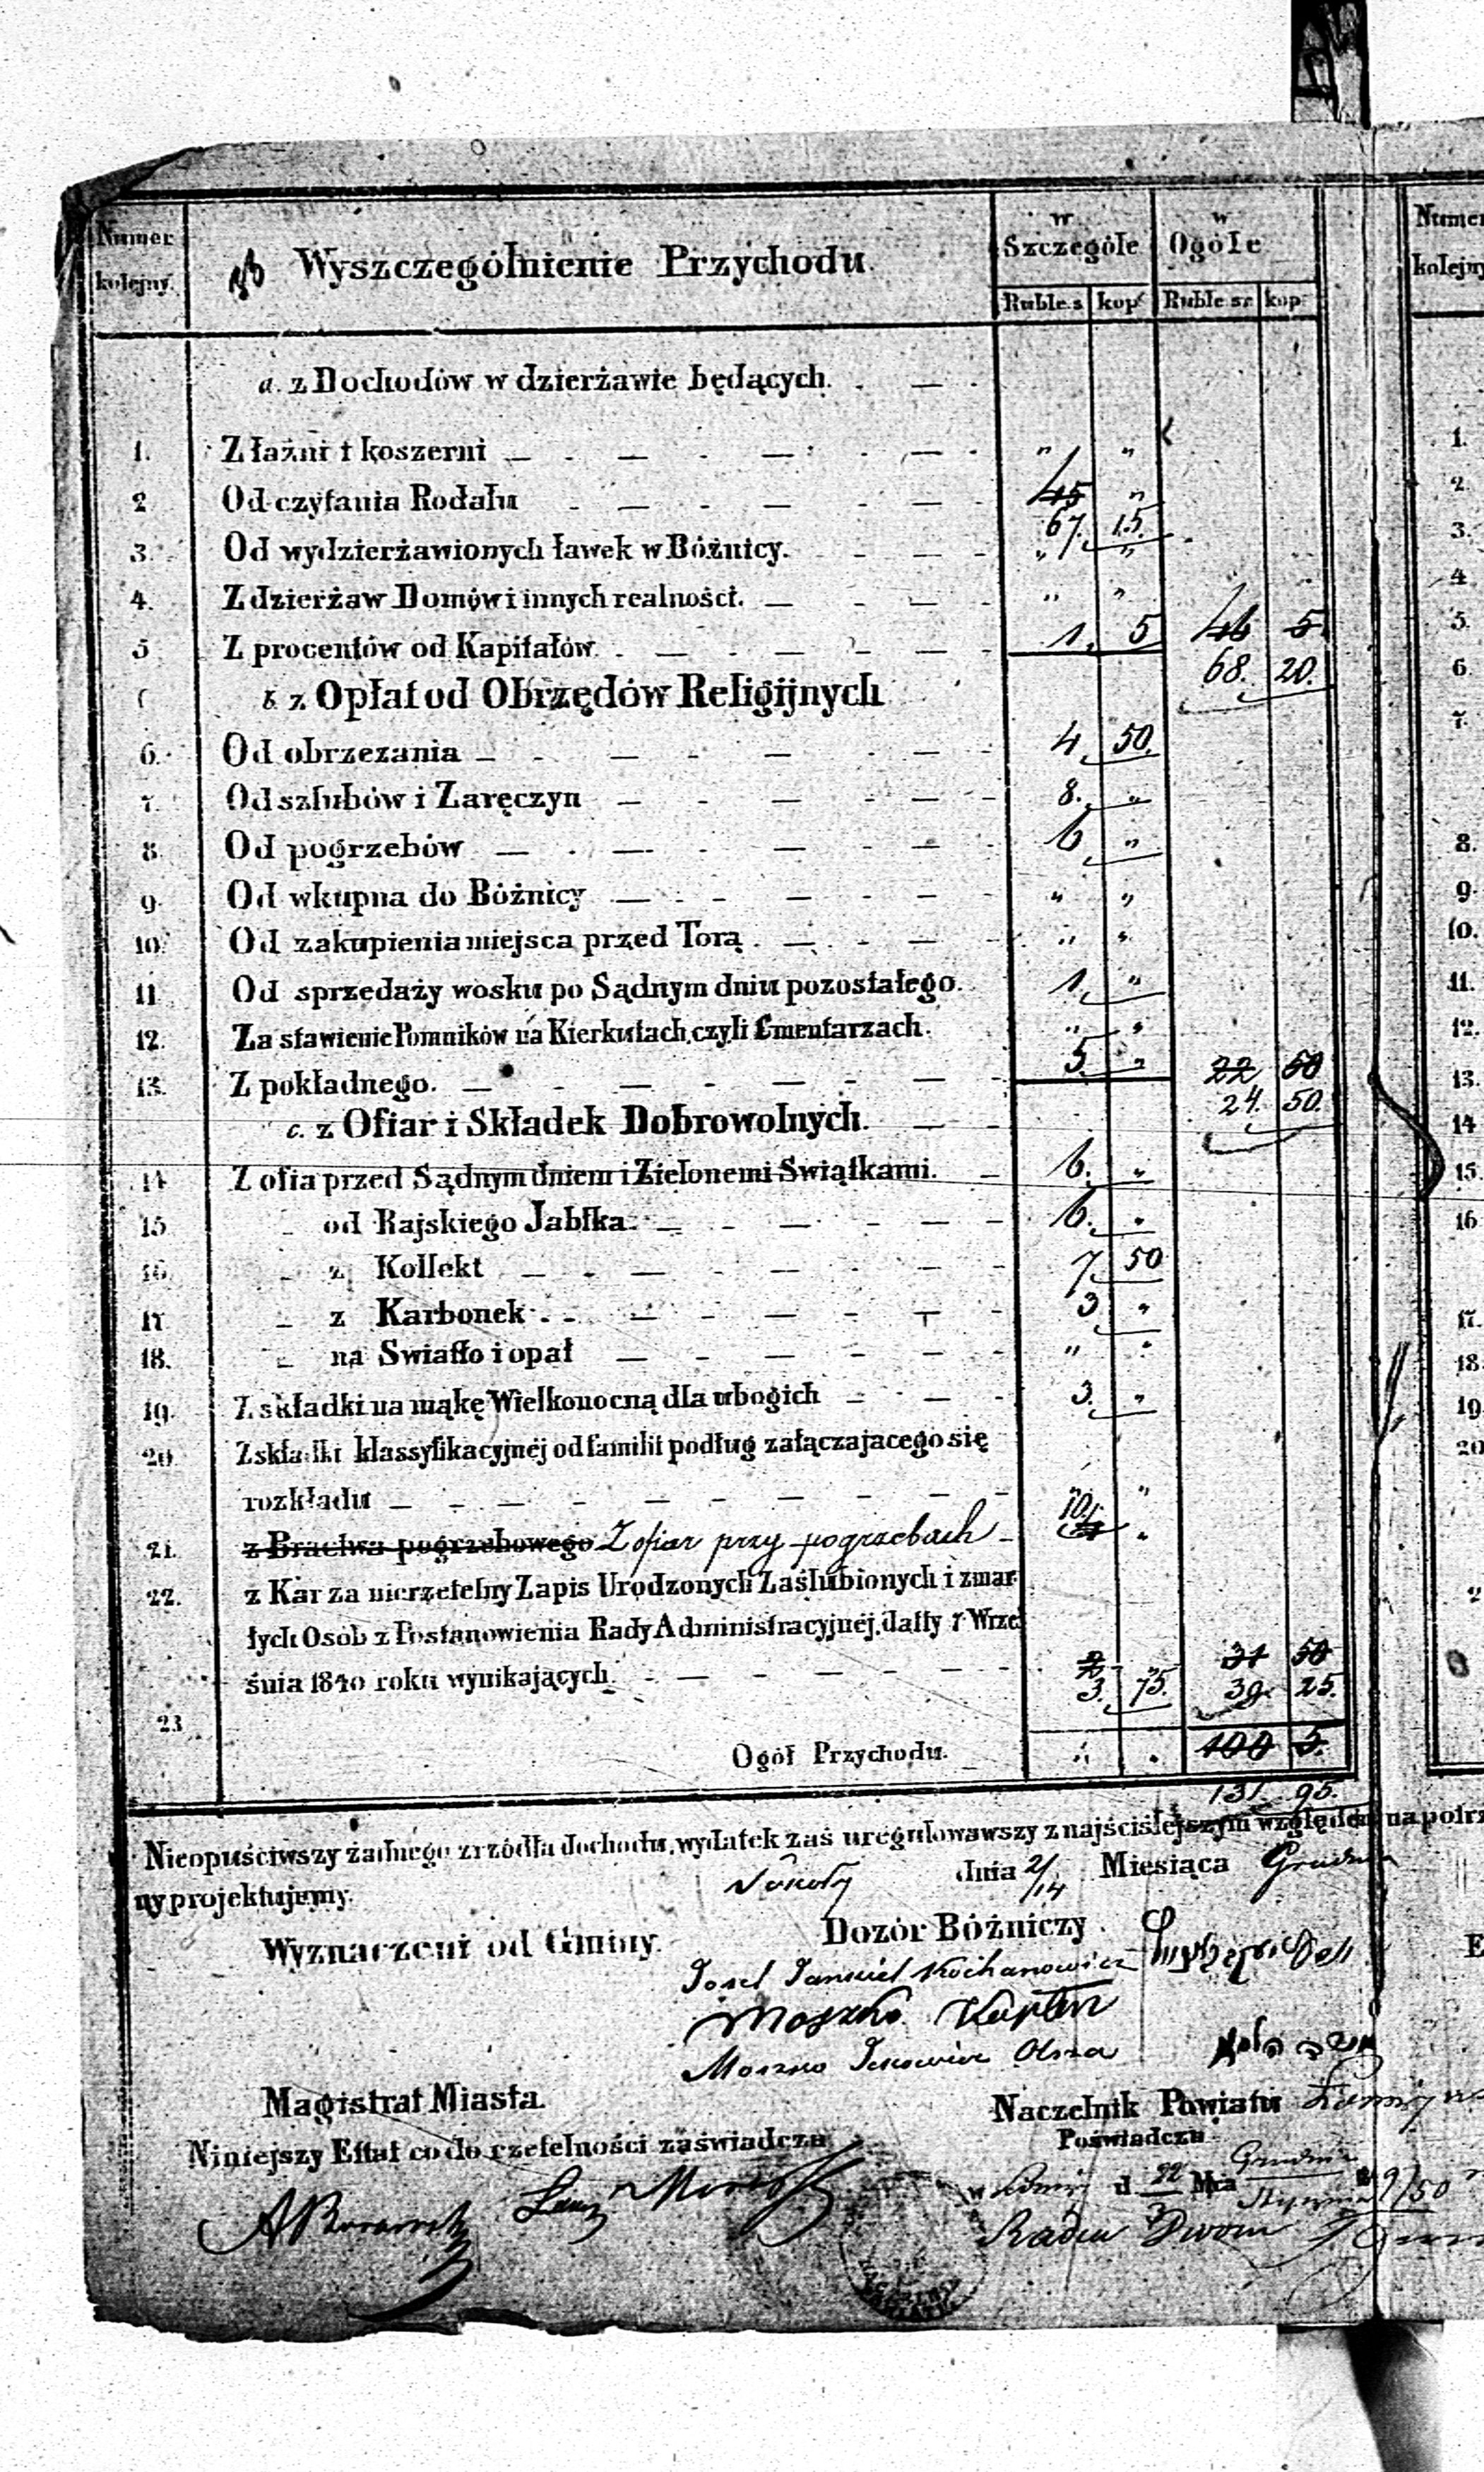 Numer kolejny.
Wyszczególnienie Przychodu.
w Szczególe
w Ogóle
Ruble s kop.
Ruble sr. kop.
a. z Dochodów w dzierżawie będących. . —
1. Z łaźni i koszerni — " "
2 Od czytania Rodału — 45 "
67. 15.
3. Od wydzierżawionych ławek w Bóżnicy. — " "
4. Z dzierżaw Domów i innych realności. — " "
5 Z procentów od Kapitałów. — 1. 5 46 5
68. 20.
b. z Opłat od Obrzędów Religijnych
6. Od obrzezania — 4 50.
7. Od szlubów i Zaręczyn — 8. "
8 Od pogrzebów — 6 "
9 Od wkupna do Bóżnicy — " "
10. Od zakupienia miejsca przed Torą . — " "
11 Od sprzedaży wosku po Sądnym dniu pozostałego. 1. "
12. Za stawienie Pomników na Kierkutach, czyli Cmentarzach. " "
13. Z pokładnego. — 5. " 22 50
24. 50.
c. z Ofiar i Składek Dobrowolnych. —
14 Z ofia przed Sądnym dniem i Zielonemi Swiątkami. — 6. "
15 — od Rajskiego Jabłka. — 6. "
16. — z Kollekt — 7 50
17 — z Karbonek . — 3. "
18. — na Swiatło i opał — " "
19. Z składki na mąkę Wielkonocną dla ubogich — 3. "
20 Z składki klassyfikacyjnéj od familii podług załączajacego się
rozkładu — " "
21. z Bractwa pogrzebowego Z ofiar przy pogrzebach — 10. "
22. z Kar za nierzetelny Zapis Urodzonych Zaślubionych i zmar
łych Osób z Postanowienia Rady Administracyjnéj, datty 7 Wrze
śnia 1840 roku wynikających. — 2 " 31 50
3. 75. 39. 25.
23
Ogół Przychodu. " " 100 5.
131. 95.
Nieopuściwszy żadnego zrzódła dochodu, wydatek zaś uregulowawszy z najściślejszym względem na potrz
ny projektujemy.
Sokoły dnia 2/14 Miesiąca Grudnia
Wyznaczeni od Gminy.
Dozór Bóżniczy .
Josel Jankiel Kochanowicz
Moszko Kaplan
Moszko Olsza
Magistrat Miasta.
Naczelnik Powiatu
Niniejszy Ettat co do rzetelności zaświadcza
Poświadcza
w d. 22 Mca Grudnia
Stycznia 1849/50 r
Radca Dworu
Numer
kolejny
1.
2.
3.
4
5.
6.
7.
8.
9.
10.
11.
12.
13.
14
15.
16
17.
18.
19.
20
2